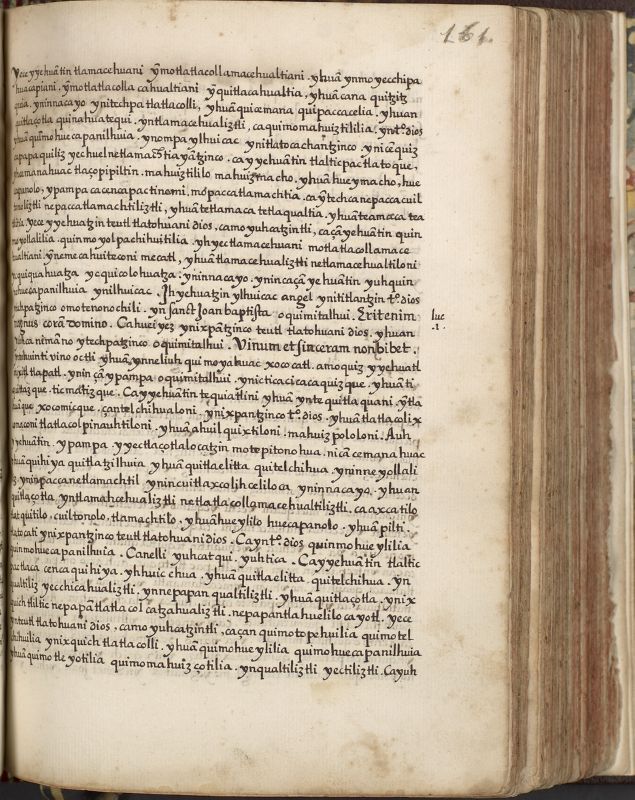 161.
Yece yyehuãtin tlamacehuani ỹmotlatlacollamacehualtiani. yhuã ynmo yecchipa
huacapiani. ỹmotlatlacolla cahualtiani ỹ quitlacahualtia, yhuã cana quitzitz
quia, yninnacayo ynitechpa tlatlacolli, yhuã quicemana quipaccacelia. yhuan
quitlaçotla quinahuatequi. yntlamacehualiztli, ca quimomahuiztililia. ynt.º dios
yhuã quĩmohuecapanilhuia. ynompa ylhuicac ynitlatocachantzinco. ynicẽquiz
capapaquiliz yechuelnetlamachtiayãtzinco. ca yyehuãtin tlalticpactlatoque,
yhuanahuac tlaçopipiltin. mahuiztililo mahuizmacho. yhuã hueymacho, hue
capanolo, ypampa cacenca pactinomi. mopaccatlamachtia. caỹtech ca nepaccacuil
tonoliztli nepaccatlamachtiliztli, yhuã tetlamaca tetlaqualtia. yhuã teamaca tea
tlitia. yece yyehuatzin teutl tlatohuani dios. camo yuhcatzintli, caçã yehuãtin quin
moyollalilia. quinmoyolpachihuitilia. yhyectlamacehuani motlatlacollamace
hualtiani. ỹnemecahuiteconi mecatl, yhuã tlamacehualiztli netlamacehualtiloni
yc quiquahuatza yc quicolohuatza. yninnacayo. ynin caçã yehuãtin yuhquin
quihuecapanilhuia ynilhuicac. Jhyehuatzin ylhuicac angel ynititlantzin t.º dios
ynichpatzinco omotenonochili. yn sanct Joan baptista oquimitalhui. Erit enim
magnus corã domino. Ca huei yez ynixpãtzinco teutl tlatohuani dios. yhuan
luc
.1.
yuhca nemãno ytechpatzinco oquimitalhui. Vinum et sinceram non bibet.
vino octli yhuã ynneliuh qui moyahuac xococatl. amo quiz yyehuatl
tlapatl. ynin çã ypampa oquimitalhui. ynicticacicacaquizque. yhuã ti
quittazque. ticmatizque. Ca yyehuãtin tequiatlini yhuã yntequitlaquani. ỹtla
huãque xocomicque, çan telchihualoni. ynixpantzinco t.º dios. yhuã tlatlacolix
nonaconi tlatlacolpinauhtiloni. yhuã ahuilquixtiloni. mahuizpololoni. Auh
yyehuãtin. ypampa. yyectlaçotlalocatzin motepitonohua. nicã cemanahuac
yhuã quihiya quitlatzilhuia yhuã quitlaelitta quitelchihua. yninneyollali
liz. yninpaccanetlamachtil ynincuiltlaxcoliheeliloca yninnacayo. yhuan
quitlaçotla. yntlamahcehualiztli netlatlacollamacehualtiliztli, ca axcatilo
tlatquitilo, cuiltonolo, tlamachtilo, yhuã hueylilo huecapanolo. yhuã pilti
tlatocati ynixpantzinco teutl tlatohuani dios. Ca ynt.º dios quinmohueylilia
quinmohuecapanilhuia. Canelli yuhcatqui. yuhtica. Ca yyehuãtin tlaltic
pactlaca cenca quihiya. yhhuicehua. yhuã quitlaelitta. quitelchihua. yn
qualtiliz yecchicahualiztli. ynnepapan qualtiliztli. yhuã quitlaçotla. ynix
quich tliltic nepapãtlatlacolcatzahualiztli. nepapantlahuelilocayotl. yece
ynteutl tlatohuani dios, camo yuhcatzintli, caçan quimotopehuilia quimotel
chihuilia ynixquich tlatlacolli. yhuã quimohueylilia quimohuecapanilhuia
yhuã quimotleyotilia quimomahuizçotilia. ynqualtiliztli yectiliztli. Cayuh